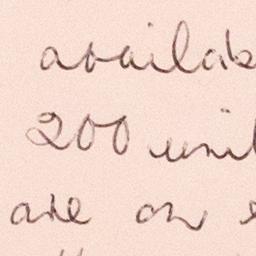 availab
200 unit
are on